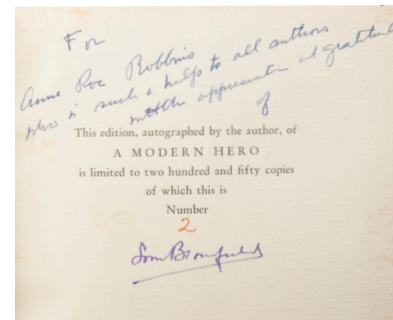 For
Anne Roe Robbins
who is such a help to all authors
with the appreciation and gratitude
of
This edition, autographed by the author, of
A MODERN HERO
is limited to two hundred and fifty copies
of which this is
Number
2
Louis Bromfield